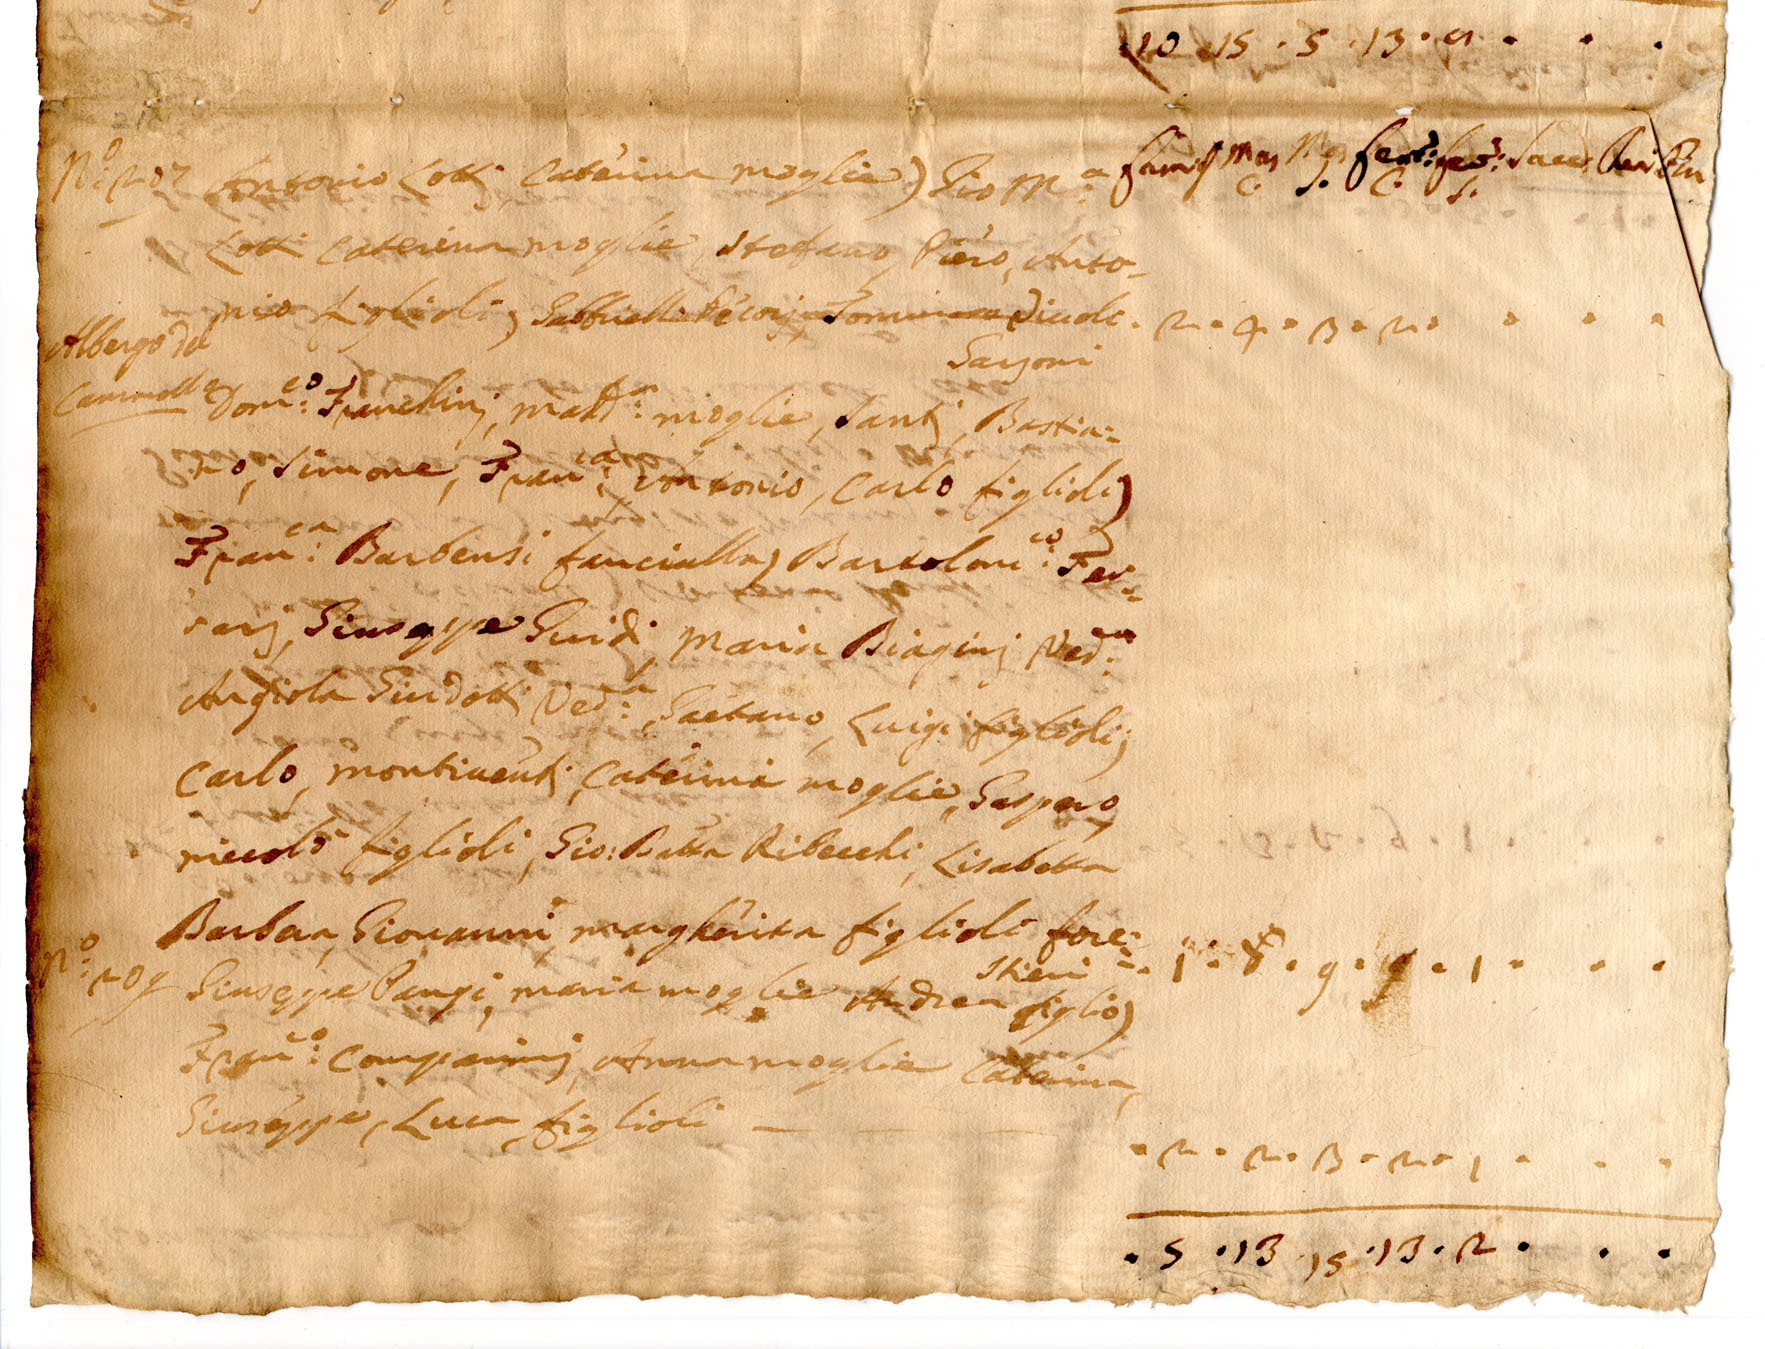 10 · 15 · 5 · 13 · 9 · · ·
Nº: 207 Antonio Lotti, Caterina moglie) Gio Mª: Fam: Mas C. Mas S. Fem: C. Fem: S. Sace:
Lotti Caterina moglie, Stefano, Piero, Anto-
nio figlioli, Gabbriello Pecori, Diodº · 2 · 4 · 3 · 2 · · · ·
Sarjoni
Albergo del
Cammello
Domᶜᵒ: Franchinj, Madª: moglie, Santi, Bastia-
no, Simone, Franᶜᵃ: Antonio, Carlo figlioli)
Franᶜᵃ: Barbensi fanciulla) Bartolomᶜᵒ: Fer-
rarj, Giuseppe Guidi, Maria Biaginj Vedᵛᵃ:
Angiola Giudotti Vedᵛᵃ: Gaetano, Luigi figlioli;
Carlo, Montiventi, Caterina moglie, Gaspero
Niccolò figlioli, Gio: Batta Ribecchi, Lisabetta
Barbera, Giovanni, Margherita figlioli fore-
stieri - · 1 · · 9 · 9 · 1 · · ·
Nº: 209 Giuseppe Pangi, Maria moglie Andrea figlio)
Franᶜᵒ: Comparinj, Anna moglie Caterina,
Giuseppe, Luca, figlioli — · 2 · 2 · 3 · 2 · 1 · · ·
· 5 · 13 · 15 · 13 · 2 · · ·